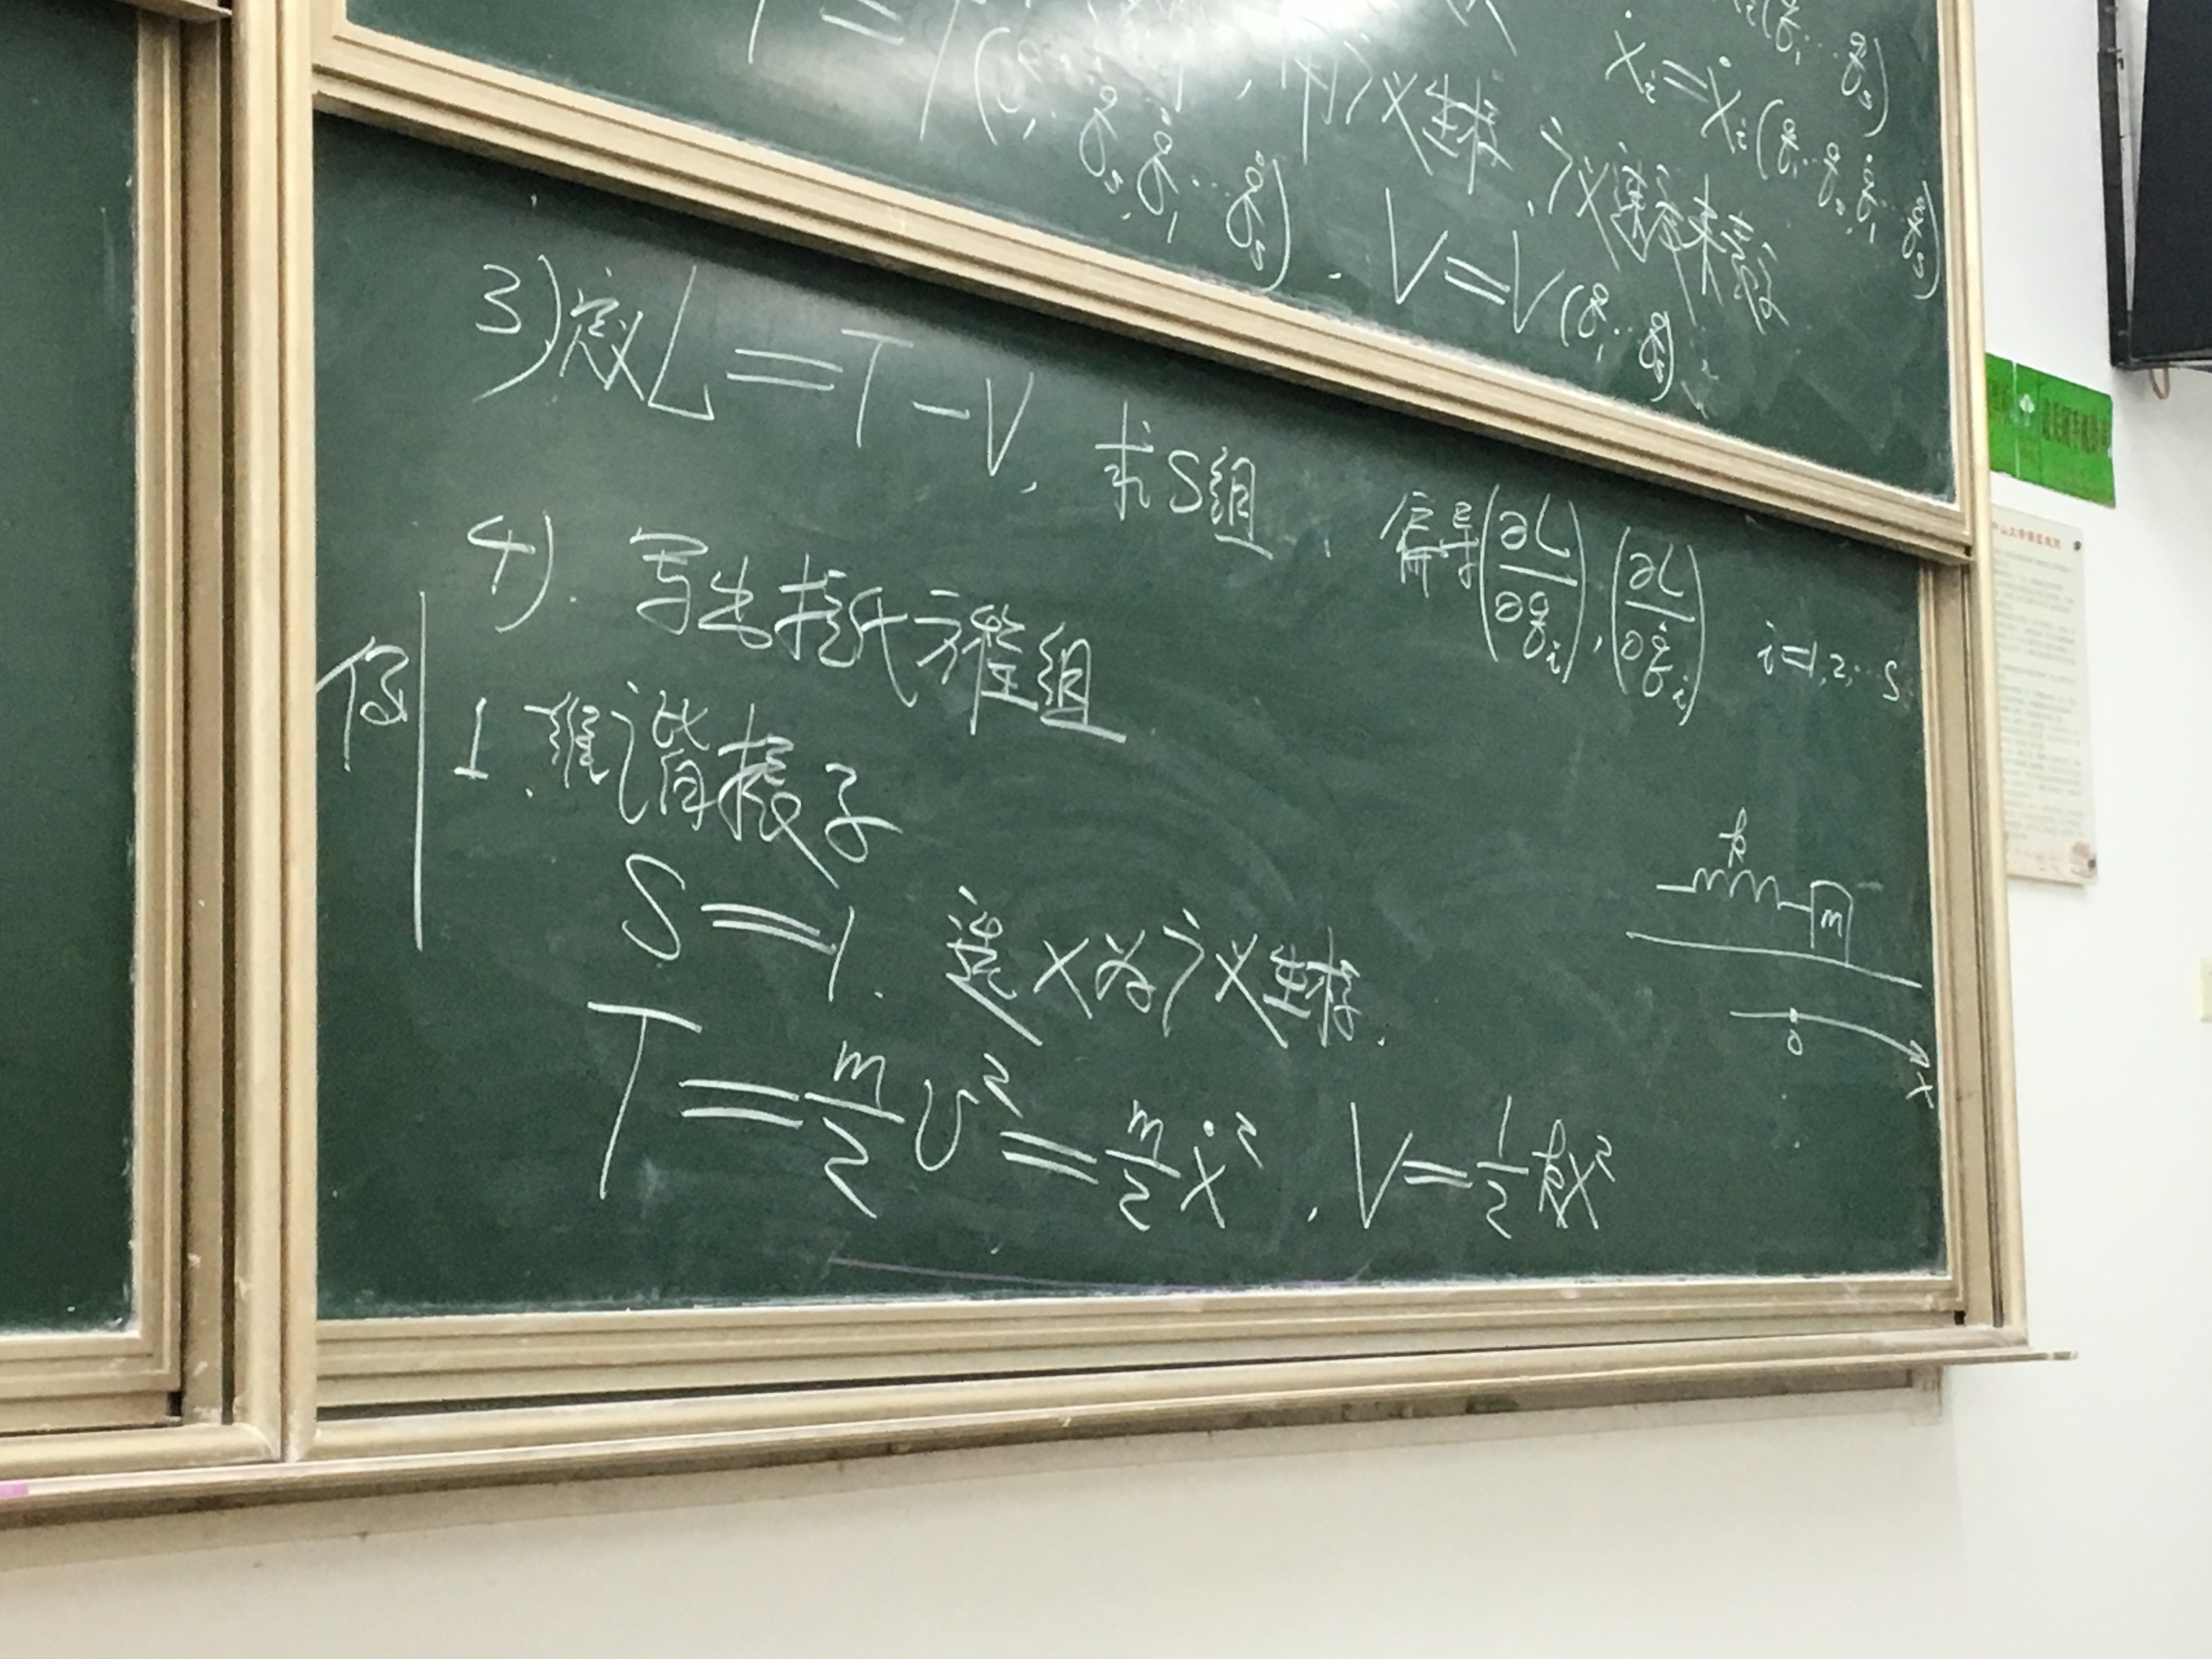 ẋᵢ = ẋᵢ(q₁…qₛ, q̇₁…q̇ₛ)
广义坐标、广义速度来表示
q₁…qₛ, q̇₁…q̇ₛ), V=V(q₁…qₛ)
3) 定义L=T-V, 求S组 偏导(∂L/∂qᵢ), (∂L/∂q̇ᵢ) i=1,2,…S
4). 写出拉氏方程组
例 1.维谐振子
k
m
S=1. 选x为广义坐标.
0
x
T=m/2 v²=m/2 ẋ², V=1/2 kx²